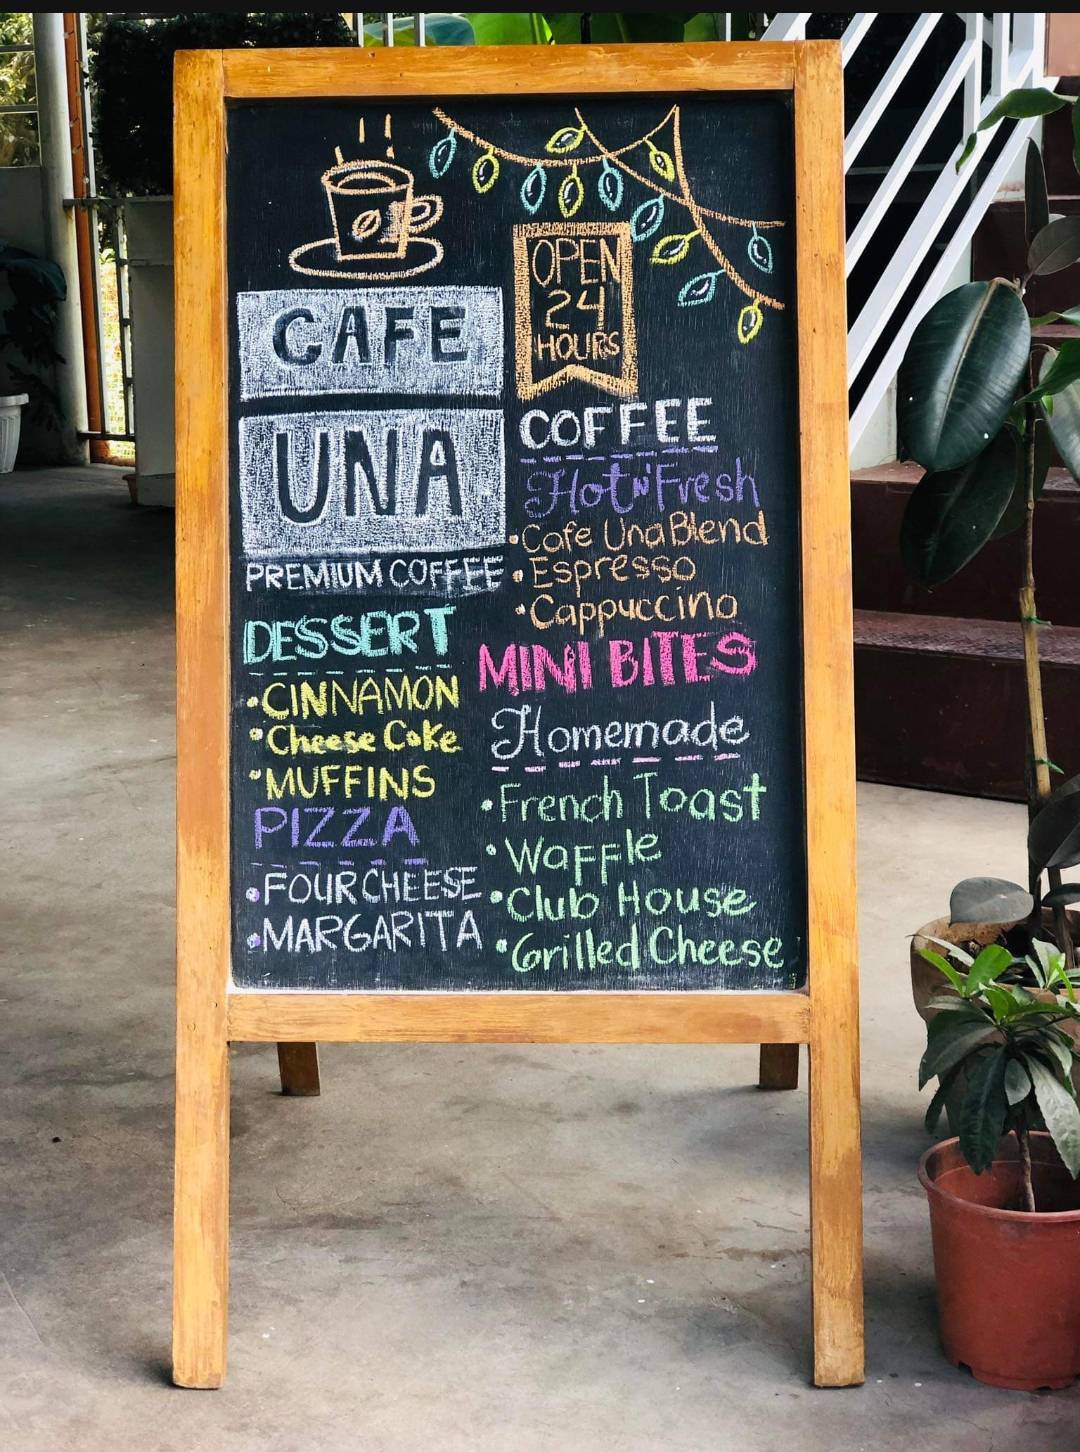 CAFE
UNA
PREMIUM COFFEE
DESSERT
• CINNAMON
• Cheese Cake
• MUFFINS
PIZZA
• FOUR CHEESE
• MARGARITA
OPEN
24
HOURS
COFFEE
Hot N' Fresh
• Cafe Una Blend
• Espresso
• Cappuccino
MINI BITES
Homemade
• French Toast
• Waffle
• Club House
• Grilled Cheese